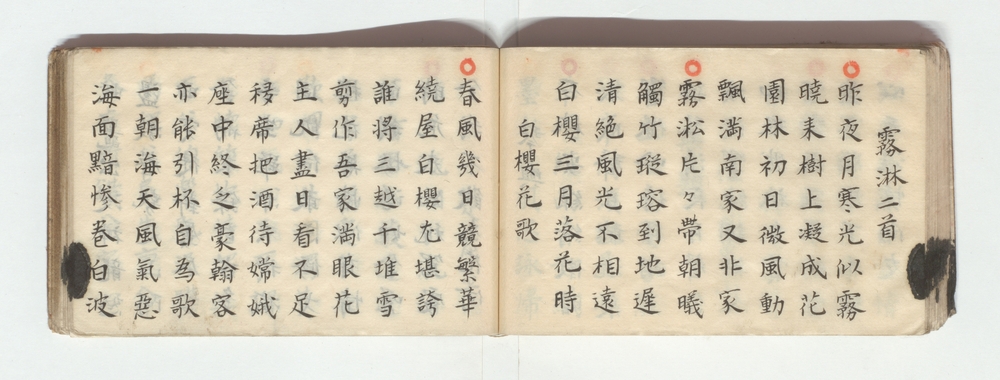 霧淋二首
昨夜月寒々光似霧
曉来樹上凝成花
園林初日微風動
飄満南家又非家
霧淞片々帶朝曦
觸竹璇瑢到地遲
清絶風光不相遠
白櫻三月落花時
白櫻花歌
春風幾日競繁華
繞屋白櫻尤堪誇
誰將三越千堆雪
剪作吾家満眼花
主人盡日看不足
移席把酒待嫦娥
座中終乏豪翰客
亦能引杯自為歌
一朝海天風氣惡
海面黯惨巻白波